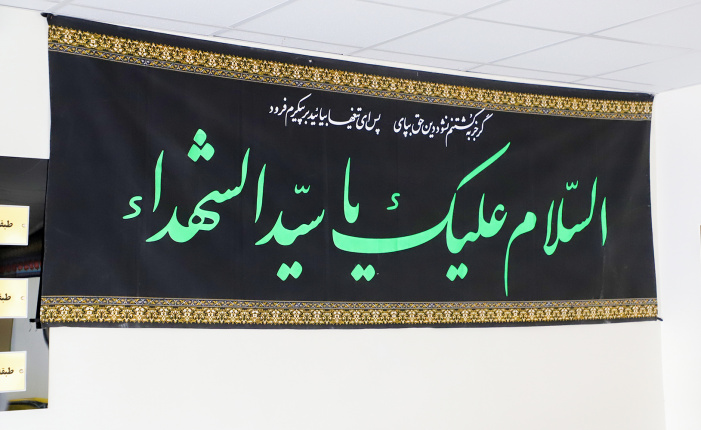 گر جز به کشتنم نشود دین حق بپای پس ای تیغها بیائید بر پیکرم فرود
السّلام علیک یا سیّد الشهداء
طبقه
طبقه
طبقه